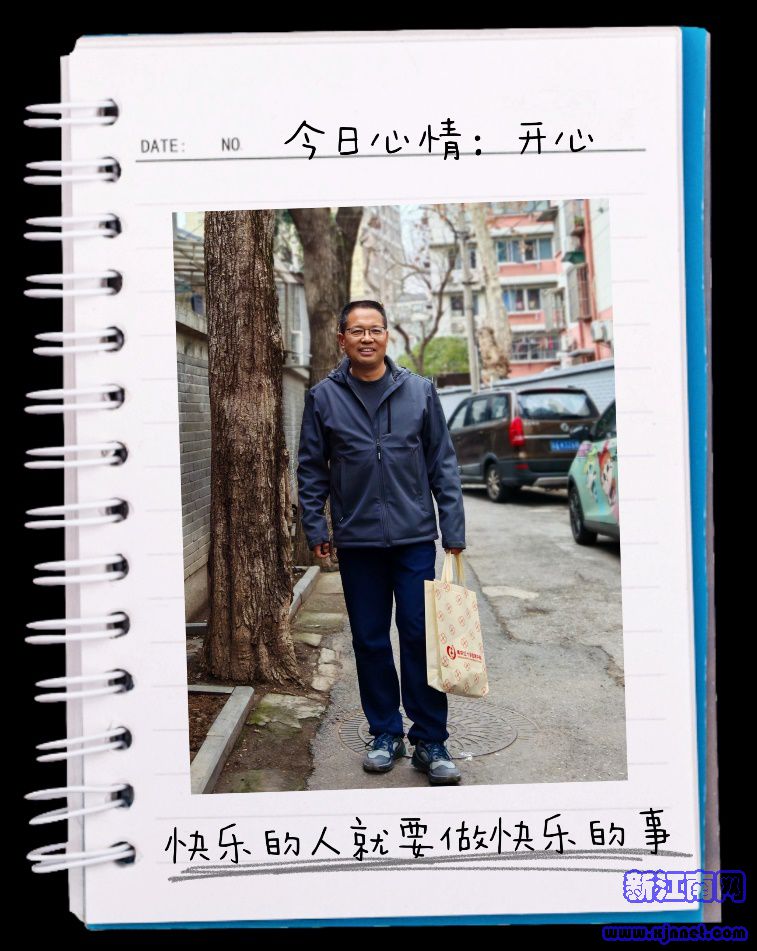 DATE: NO. 今日心情：开心
快乐的人就要做快乐的事
新江南网
www.xjnnet.com